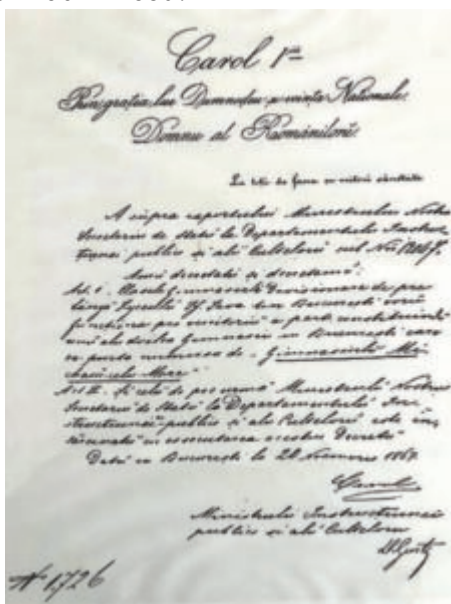 Carol I
Prin gratia lui Dumnedeu și vointa Nationale
Domnu al Românilorŭ
La toti de fata
Asupra raportului Ministrului Nostru
Secretariu de Statŭ la Departamentulŭ Instruc
publice și alŭ Cultelorŭ sub No.
Amŭ decretatŭ și decretămŭ:
Art. I. Clasele Gimnasiale divisionare de pre
lângă Lyceulŭ Sf. Sava din Bucuresti vorŭ
functiona pe viitoriŭ a parte constituindŭ
unŭ alŭ doilea Gimnasiu in Bucuresti care
va purta numirea de Gimnasiulŭ Mi
haiŭ celŭ Mare
Art II. Ministrulŭ Nostru
Secretariu de Statŭ la Departamentulŭ In
structiunei publice și alŭ Cultelorŭ este în
sărcinatŭ cu essecutarea acestui Decretŭ
Datŭ in Bucuresti la 186
Carol
Ministrulŭ Instructiunei
publice și alŭ Cultelorŭ
D. Gusti
No 1,726